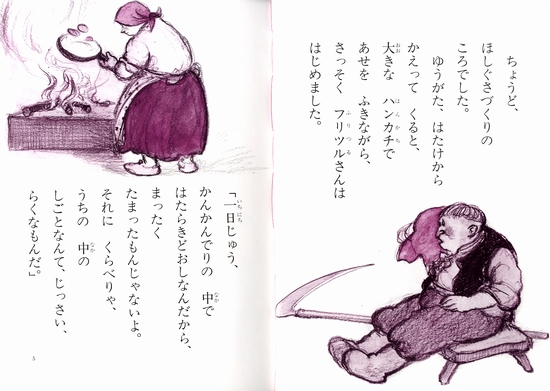 ちょうど、
ほしぐさづくりの
ころでした。
ゆうがた、はたけから
かえって くると、
大きな ハンカチで
あせを ふきながら、
さっそく フリツルさんは
はじめました。
「一日じゅう、
かんかんでりの 中で
はたらきどおしなんだから、
まったく
たまったもんじゃないよ。
それに くらべりゃ、
うちの 中の
しごとなんて、じっさい、
らくなもんだ。」
5